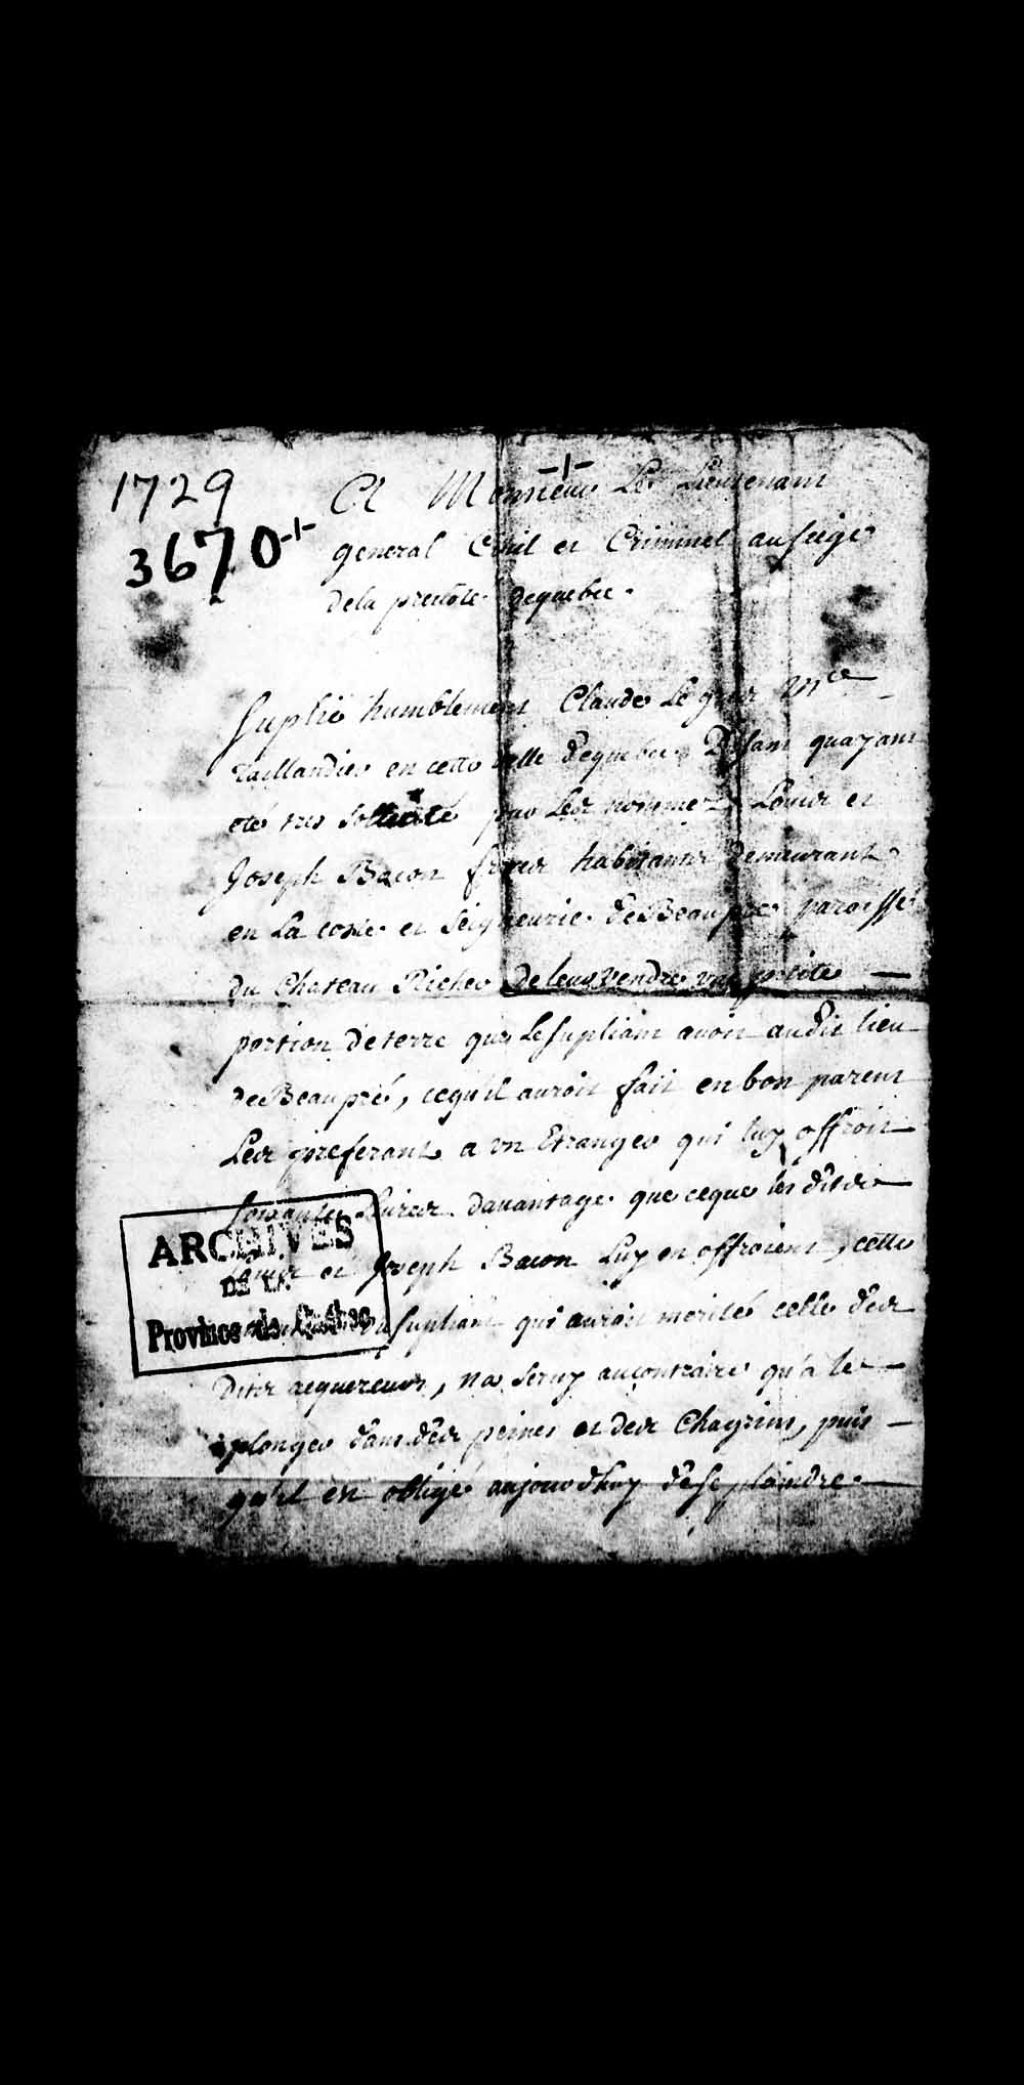 1729
3670-1-
-1-
A Monsieur Le Lieutenant
general Civil et Criminel au siege
dela prevoté dequebec.
Suplie humblement Claude Le gris Mre
Taillandier en cette ville dequebec Disant quayant
eté tres sollicité par Les nommez Louis et
Joseph Bacon freres habitants demeurant
en La coste et Seigneurie de Beaupré paroisse
du Chateau Richer de leur vendre une petite
portion de terre que Le supliant avoit audit lieu
de Beaupré, cequ'il auroit fait en bon parent
Les preferant a un Etranger qui luy offroit
soixante Livres davantage que ceque les dits
Louis et Joseph Bacon Luy en offroient, cette
du supliant qui auroit merité celle des
Dits acquereurs, na servy aucontraire qu'a le
plonger dans des peines et des Chagrins, puis
qu'il est obligé aujourdhuy dese plaindre
ARCHIVES
DE LA
Province de Québec